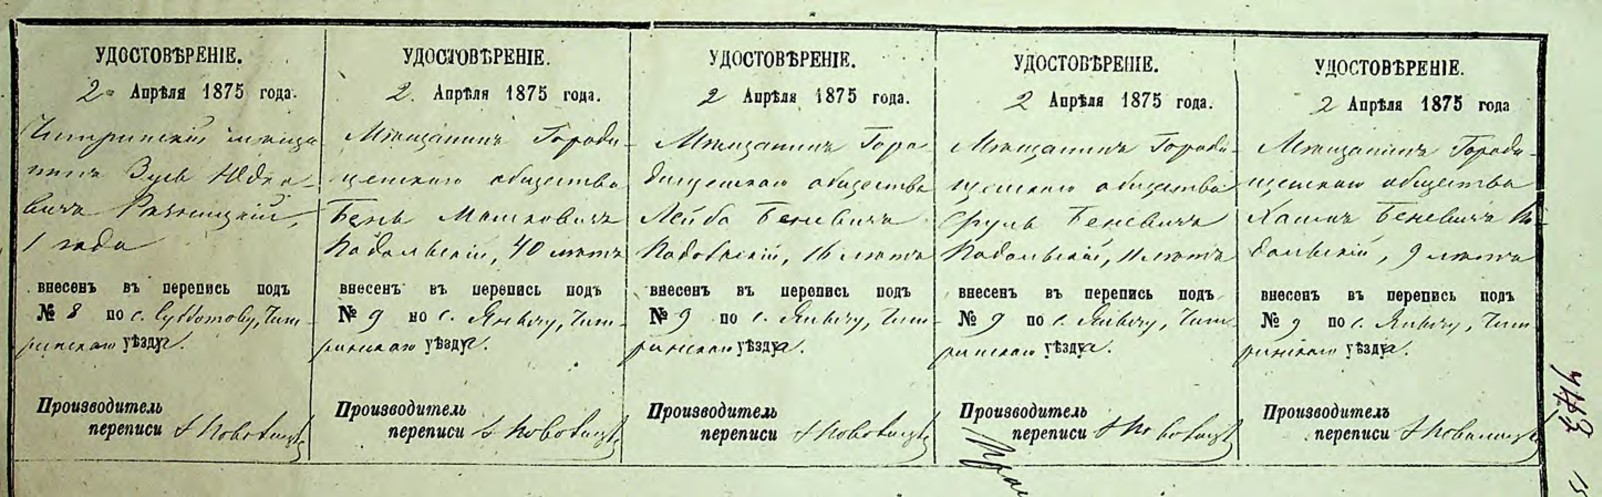 УДОСТОВѢРЕНІЕ.
2 Апрѣля 1875 года.
Чигиринскій мѣща-
нинъ Зусь
1 года
внесенъ въ перепись подъ
№ 8 по с. Субботову, Чиги-
ринскаго уѣзда.
Производитель
переписи
УДОСТОВѢРЕНІЕ.
2 Апрѣля 1875 года.
Мѣщанинъ Городи-
щенскаго общества
Бень Мошковичъ
Подольскій, 40 лѣтъ
внесенъ въ перепись подъ
№ 9 по с. Янычу, Чиги-
ринскаго уѣзда.
Производитель
переписи
УДОСТОВѢРЕНІЕ.
2 Апрѣля 1875 года.
Мѣщанинъ Горо-
дищенскаго общества
Лейба Беневичъ
Подольскій, 16 лѣтъ
внесенъ въ перепись подъ
№ 9 по с. Янычу, Чиги-
ринскаго уѣзда.
Производитель
переписи
УДОСТОВѢРЕНІЕ.
2 Апрѣля 1875 года.
Мѣщанинъ Городи-
щенскаго общества
Сруль Беневичъ
Подольскій, 11 лѣтъ
внесенъ въ перепись подъ
№ 9 по с. Янычу, Чиги-
ринскаго уѣзда.
Производитель
переписи
УДОСТОВѢРЕНІЕ.
2 Апрѣля 1875 года
Мѣщанинъ Городи-
щенскаго общества
Беневичъ По-
дольскій, 9 лѣтъ
внесенъ въ перепись подъ
№ 9 по с. Янычу, Чиги-
ринскаго уѣзда.
Производитель
переписи